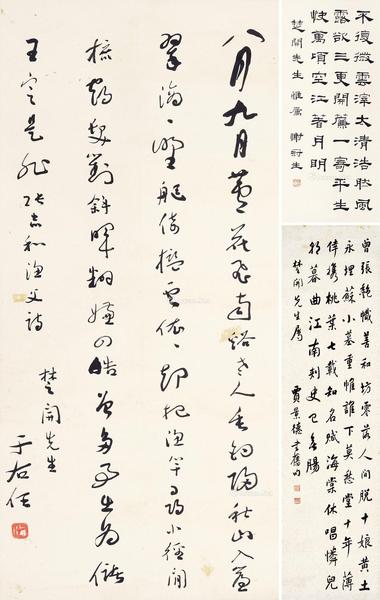 不復微雲滓太清浩然風
露欲三更開簾一寄平生
快萬頃空江著月明
楚開先生 雅屬 謝冠生
曾張艷幟善和坊零落人間脫十娘黃土
永埋蘇小墓重惟誰下莫愁堂十年薄
倖携桃葉七載知名賦海棠休唱憐兒
暮曲江南刺史已無腸
楚開先生屬 賈景德書舊句
八月九月蘆花飛南谿老人重釣歸秋山入簾
翠滴〻野艇倚檻雲依〻却把漁竿尋小徑閒
梳鶴髮對斜暉翻嫌四皓曾多事出為儲
王定是非 張志和漁父詩
楚開先生
于右任